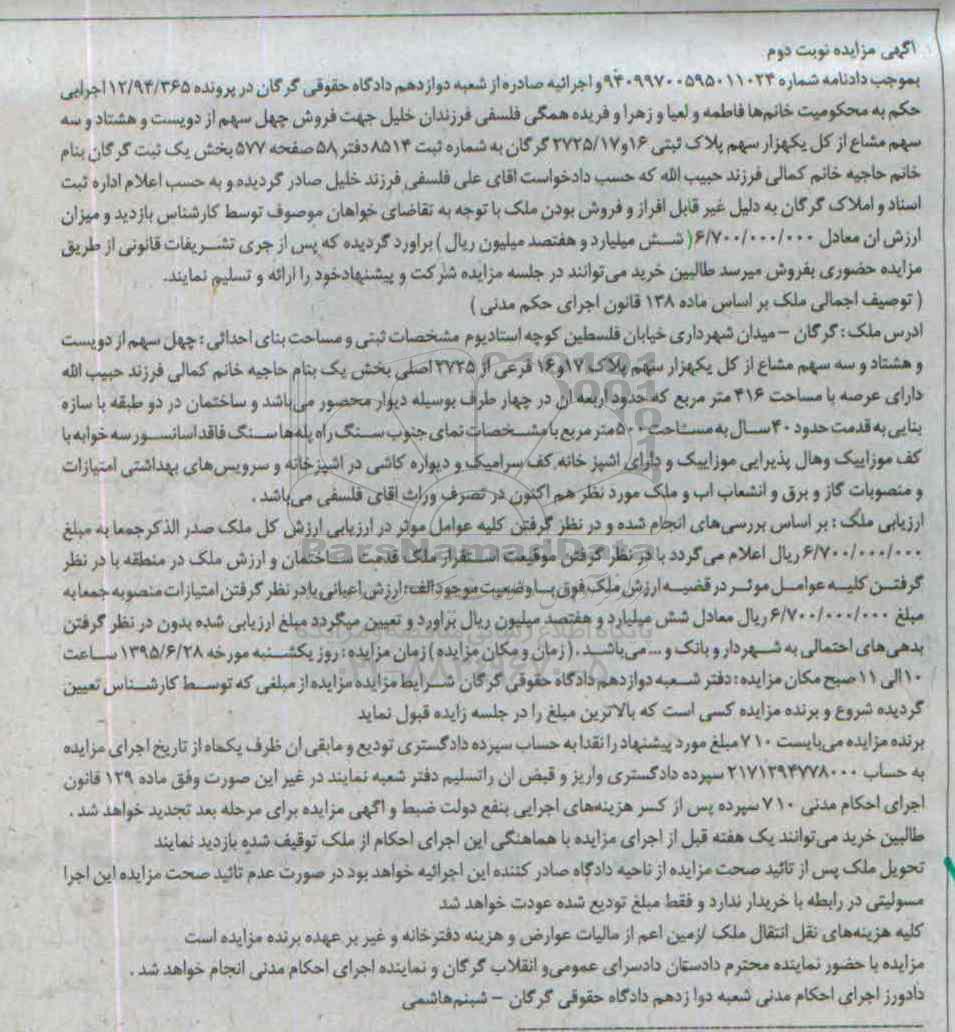 اگهی مزایده نوبت دوم
بموجب دادنامه شماره ۹۴۰۹۹۷۰۰۵۹۵۰۱۱۰۲۴ و اجرائیه صادره از شعبه دوازدهم دادگاه حقوقی گرگان در پرونده ۱۲/۹۴/۳۶۵ اجرایی
حکم به محکومیت خانم‌ها فاطمه و لعیا و زهرا و فریده همگی فلسفی فرزندان خلیل جهت فروش چهل سهم از دویست و هشتاد و سه
سهم مشاع از کل یکهزار سهم پلاک ثبتی ۱۶و۲۷۲۵/۱۷ گرگان به شماره ثبت ۸۵۱۴ دفتر ۵۸ صفحه ۵۷۷ بخش یک ثبت گرگان بنام
خانم حاجیه خانم کمالی فرزند حبیب الله که حسب دادخواست اقای علی فلسفی فرزند خلیل صادر گردیده و به حسب اعلام اداره ثبت
اسناد و املاک گرگان به دلیل غیر قابل افراز و فروش بودن ملک با توجه به تقاضای خواهان موصوف توسط کارشناس بازدید و میزان
ارزش ان معادل ۶/۷۰۰/۰۰۰/۰۰۰( شش میلیارد و هفتصد میلیون ریال ) براورد گردیده که پس از جری تشریفات قانونی از طریق
مزایده حضوری بفروش میرسد طالبین خرید می‌توانند در جلسه مزایده شرکت و پیشنهادخود را ارائه و تسلیم نمایند.
( توصیف اجمالی ملک بر اساس ماده ۱۳۸ قانون اجرای حکم مدنی )
ادرس ملک : گرگان – میدان شهرداری خیابان فلسطین کوچه استادیوم مشخصات ثبتی و مساحت بنای احداثی : چهل سهم از دویست
و هشتاد و سه سهم مشاع از کل یکهزار سهم پلاک ۱۷و۱۶ فرعی از ۲۷۲۵ اصلی بخش یک بنام حاجیه خانم کمالی فرزند حبیب الله
دارای عرصه با مساحت ۴۱۶ متر مربع که حدود اربعه ان در چهار طرف بوسیله دیوار محصور می‌باشد و ساختمان در دو طبقه با سازه
بنایی به قدمت حدود ۴۰ سال به مساحت ۵۰۰ متر مربع با مشخصات نمای جنوب سنگ راه پله‌ها سنگ فاقد اسانسور سه خوابه با
کف موزاییک وهال پذیرایی موزاییک و دارای اشپز خانه کف سرامیک و دیواره کاشی در اشپزخانه و سرویس‌های بهداشتی امتیازات
و منصوبات گاز و برق و انشعاب اب و ملک مورد نظر هم اکنون در تصرف وراث اقای فلسفی می‌باشد .
ارزیابی ملک : بر اساس بررسی‌های انجام شده و در نظر گرفتن کلیه عوامل موثر در ارزیابی ارزش کل ملک صدر الذکر جمعا به مبلغ
۶/۷۰۰/۰۰۰/۰۰۰ ریال اعلام می گردد با در نظر گرفتن موقیعت استقرار ملک قدمت ساختمان و ارزش ملک در منطقه با در نظر
گرفتن کلیه عوامل موثر در قضیه ارزش ملک فوق با وضعیت موجود الف: ارزش اعیانی با در نظر گرفتن امتیازات منصوبه جمعا به
مبلغ ۶/۷۰۰/۰۰۰/۰۰۰ ریال معادل شش میلیارد و هفتصد میلیون ریال براورد و تعیین میگردد مبلغ ارزیابی شده بدون در نظر گرفتن
بدهی‌های احتمالی به شهردار و بانک و ... می‌باشد . ( زمان و مکان مزایده ) زمان مزایده : روز یکشنبه مورخه ۱۳۹۵/۶/۲۸ ساعت
۱۰ الی ۱۱ صبح مکان مزایده : دفتر شعبه دوازدهم دادگاه حقوقی گرگان شرایط مزایده مزایده از مبلغی که توسط کارشناس تعیین
گردیده شروع و برنده مزایده کسی است که بالاترین مبلغ را در جلسه زایده قبول نماید
برنده مزایده می‌بایست ۷۱۰ مبلغ مورد پیشنهاد را نقدا به حساب سپرده دادگستری تودیع و مابقی ان ظرف یکماه از تاریخ اجرای مزایده
به حساب ۲۱۷۱۲۹۴۷۷۸۰۰۰ سپرده دادگستری واریز و قبض ان راتسلیم دفتر شعبه نمایند در غیر این صورت وفق ماده ۱۲۹ قانون
اجرای احکام مدنی ۷۱۰ سپرده پس از کسر هزینه‌های اجرایی بنفع دولت ضبط و اگهی مزایده برای مرحله بعد تجدید خواهد شد .
طالبین خرید می‌توانند یک هفته قبل از اجرای مزایده با هماهنگی این اجرای احکام از ملک توقیف شده بازدید نمایند
تحویل ملک پس از تائید صحت مزایده از ناحیه دادگاه صادر کننده این اجرائیه خواهد بود در صورت عدم تائید صحت مزایده این اجرا
مسولیتی در رابطه با خریدار ندارد و فقط مبلغ تودیع شده عودت خواهد شد
کلیه هزینه‌های نقل انتقال ملک /زمین اعم از مالیات عوارض و هزینه دفترخانه و غیر بر عهده برنده مزایده است
مزایده با حضور نماینده محترم دادستان دادسرای عمومی‌و انقلاب گرگان و نماینده اجرای احکام مدنی انجام خواهد شد .
دادورز اجرای احکام مدنی شعبه دوا زدهم دادگاه حقوقی گرگان – شبنم‌هاشمی
ParsNamadData